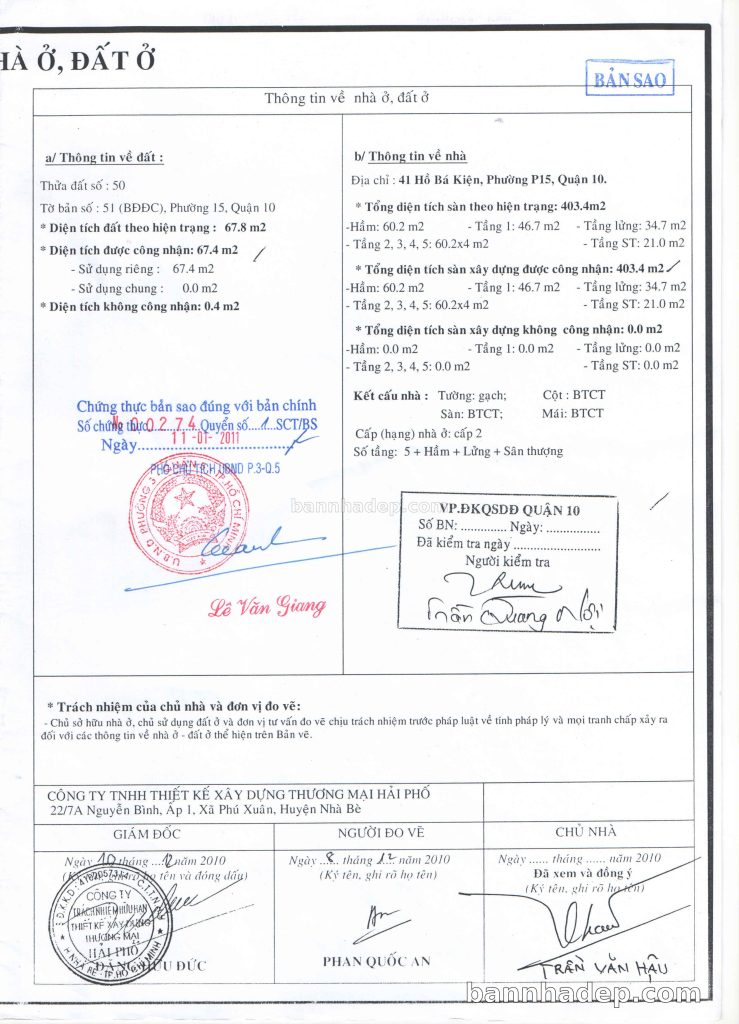 HÀ Ở, ĐẤT Ở
BẢN SAO
Thông tin về nhà ở, đất ở
a/ Thông tin về đất :
Thửa đất số : 50
Tờ bản số : 51 (BĐĐC), Phường 15, Quận 10
* Diện tích đất theo hiện trạng : 67.8 m2
* Diện tích được công nhận: 67.4 m2
- Sử dụng riêng : 67.4 m2
- Sử dụng chung : 0.0 m2
* Diện tích không công nhận: 0.4 m2
Chứng thực bản sao đúng với bản chính
Số chứng thực № 00274 Quyển số 1 SCT/BS
Ngày 11-01-2011
PHÓ CHỦ TỊCH UBND P.3-Q.5
U.B.N.D PHƯỜNG 3 QUẬN 5 T.P HỒ CHÍ MINH
Lê Văn Giang
b/ Thông tin về nhà
Địa chỉ : 41 Hồ Bá Kiện, Phường P15, Quận 10.
* Tổng diện tích sàn theo hiện trạng: 403.4m2
-Hầm: 60.2 m2 - Tầng 1: 46.7 m2 - Tầng lửng: 34.7 m2
- Tầng 2, 3, 4, 5: 60.2x4 m2 - Tầng ST: 21.0 m2
* Tổng diện tích sàn xây dựng được công nhận: 403.4 m2
-Hầm: 60.2 m2 - Tầng 1: 46.7 m2 - Tầng lửng: 34.7 m2
- Tầng 2, 3, 4, 5: 60.2x4 m2 - Tầng ST: 21.0 m2
* Tổng diện tích sàn xây dựng không công nhận: 0.0 m2
-Hầm: 0.0 m2 - Tầng 1: 0.0 m2 - Tầng lửng: 0.0 m2
- Tầng 2, 3, 4, 5: 0.0 m2 - Tầng ST: 0.0 m2
Kết cấu nhà : Tường: gạch; Cột : BTCT
Sàn: BTCT; Mái: BTCT
Cấp (hạng) nhà ở: cấp 2
Số tầng: 5 + Hầm + Lửng + Sân thượng
bannhadep.com
VP.ĐKQSDĐ QUẬN 10
Số BN: ............. Ngày: ...............
Đã kiểm tra ngày ........................
Người kiểm tra
Trần Quang Nội
* Trách nhiệm của chủ nhà và đơn vị đo vẽ:
- Chủ sở hữu nhà ở, chủ sử dụng đất ở và đơn vị tư vấn đo vẽ chịu trách nhiệm trước pháp luật về tính pháp lý và mọi tranh chấp xảy ra
đối với các thông tin về nhà ở - đất ở thể hiện trên Bản vẽ.
CÔNG TY TNHH THIẾT KẾ XÂY DỰNG THƯƠNG MẠI HẢI PHỐ
22/7A Nguyễn Bình, Ấp 1, Xã Phú Xuân, Huyện Nhà Bè
GIÁM ĐỐC
Ngày 10 tháng 12 năm 2010
(Ký tên, ghi rõ họ tên và đóng dấu)
CÔNG TY
TRÁCH NHIỆM HỮU HẠN
THIẾT KẾ XÂY DỰNG
THƯƠNG MẠI
HẢI PHỐ
H.NHÀ BÈ - TP.HỒ CHÍ MINH
ĐẶNG HỮU ĐỨC
NGƯỜI ĐO VẼ
Ngày 8 tháng 12 năm 2010
(Ký tên, ghi rõ họ tên)
PHAN QUỐC AN
CHỦ NHÀ
Ngày ...... tháng ...... năm 2010
Đã xem và đồng ý
(Ký tên, ghi rõ họ tên)
TRẦN VĂN HẬU
bannhadep.com